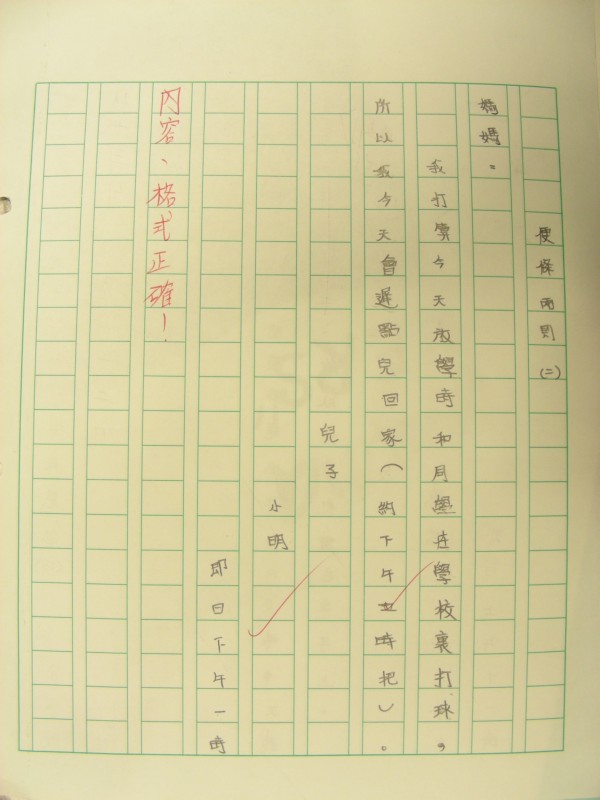 便條兩則(二)
媽媽：
我打算今天放學時和同學在學校裏打球，
所以我今天會遲點兒回家（約下午五時把）。
兒子
小明
即日下午一時
內容、格式正確！